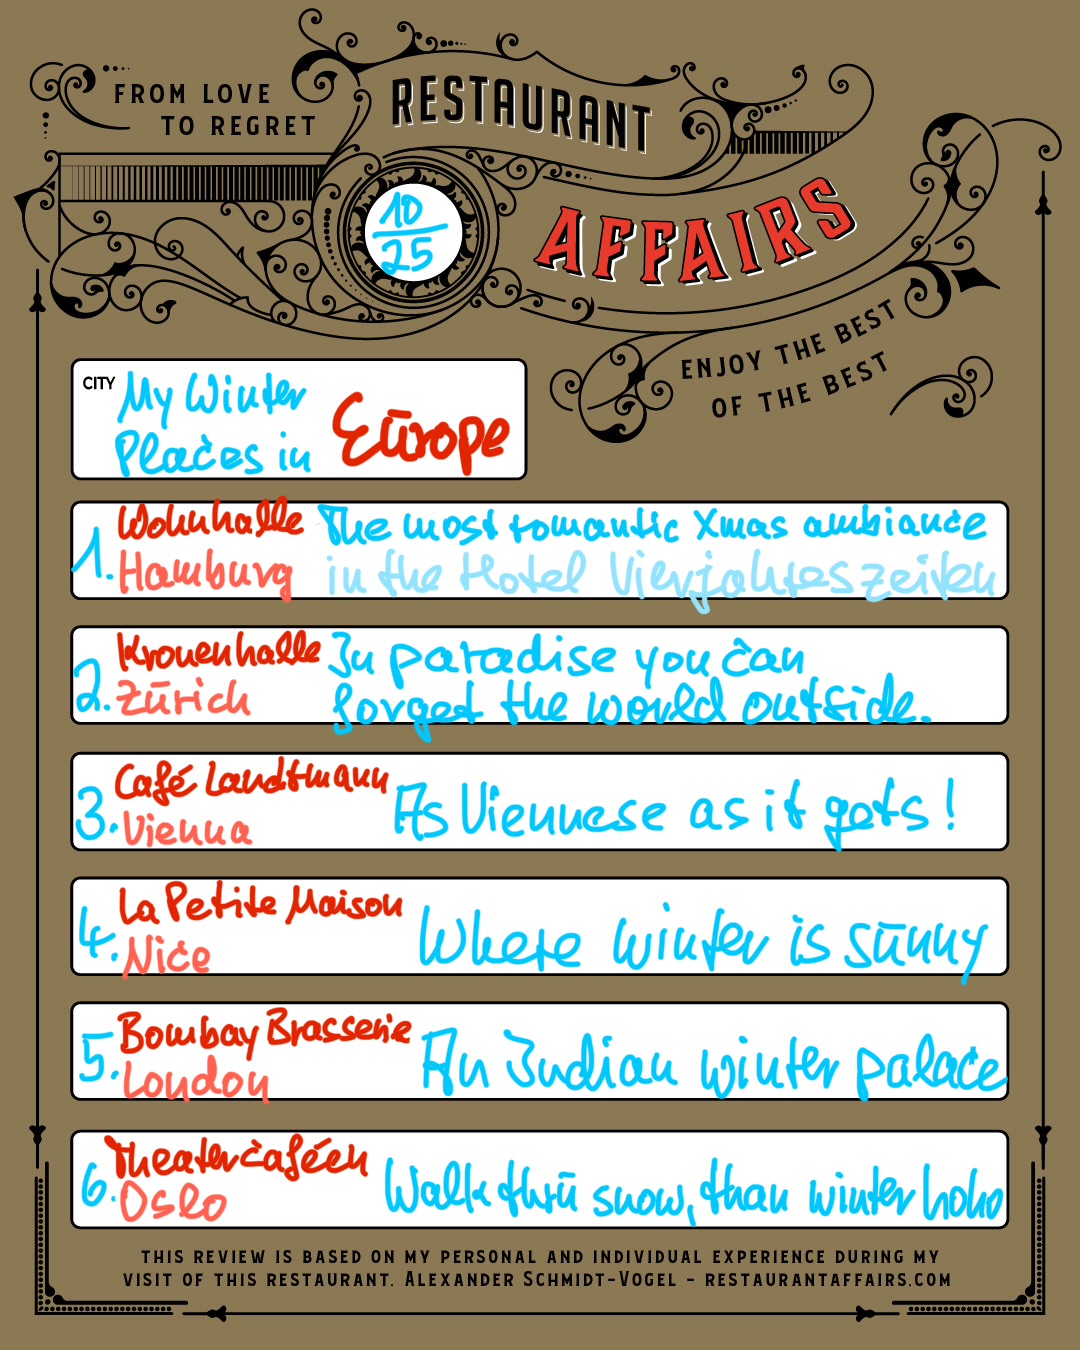 FROM LOVE
TO REGRET
RESTAURANT
AFFAIRS
10
25
ENJOY THE BEST
OF THE BEST
CITY
My Winter
Places in
Europe
1.
Wohnhalle
Hamburg
The most romantic Xmas ambiance
in the Hotel Vierjahreszeiten
2.
Kronenhalle
Zürich
In paradise you can
forget the world outside.
3.
Café Landtmann
Vienna
As Viennese as it gets!
4.
La Petite Maison
Nice
Where winter is sunny
5.
Bombay Brasserie
London
An Indian winter palace
6.
Theatercaféen
Oslo
Walk thru snow, than winter hoho
THIS REVIEW IS BASED ON MY PERSONAL AND INDIVIDUAL EXPERIENCE DURING MY
VISIT OF THIS RESTAURANT. ALEXANDER SCHMIDT-VOGEL – RESTAURANTAFFAIRS.COM